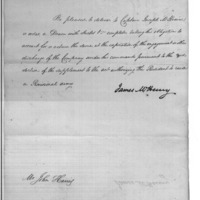 Be pleased to deliver to Captain Joseph McKinnon
a Drum with sticks &c complete taking his obligation to
account for or return the same at the expiration of the engagement or the
discharge of the Company under his command pursuant to the
section of the supplement to the act authorizing the President to raise
a Provisional army
James McHenry
Mr John Harris